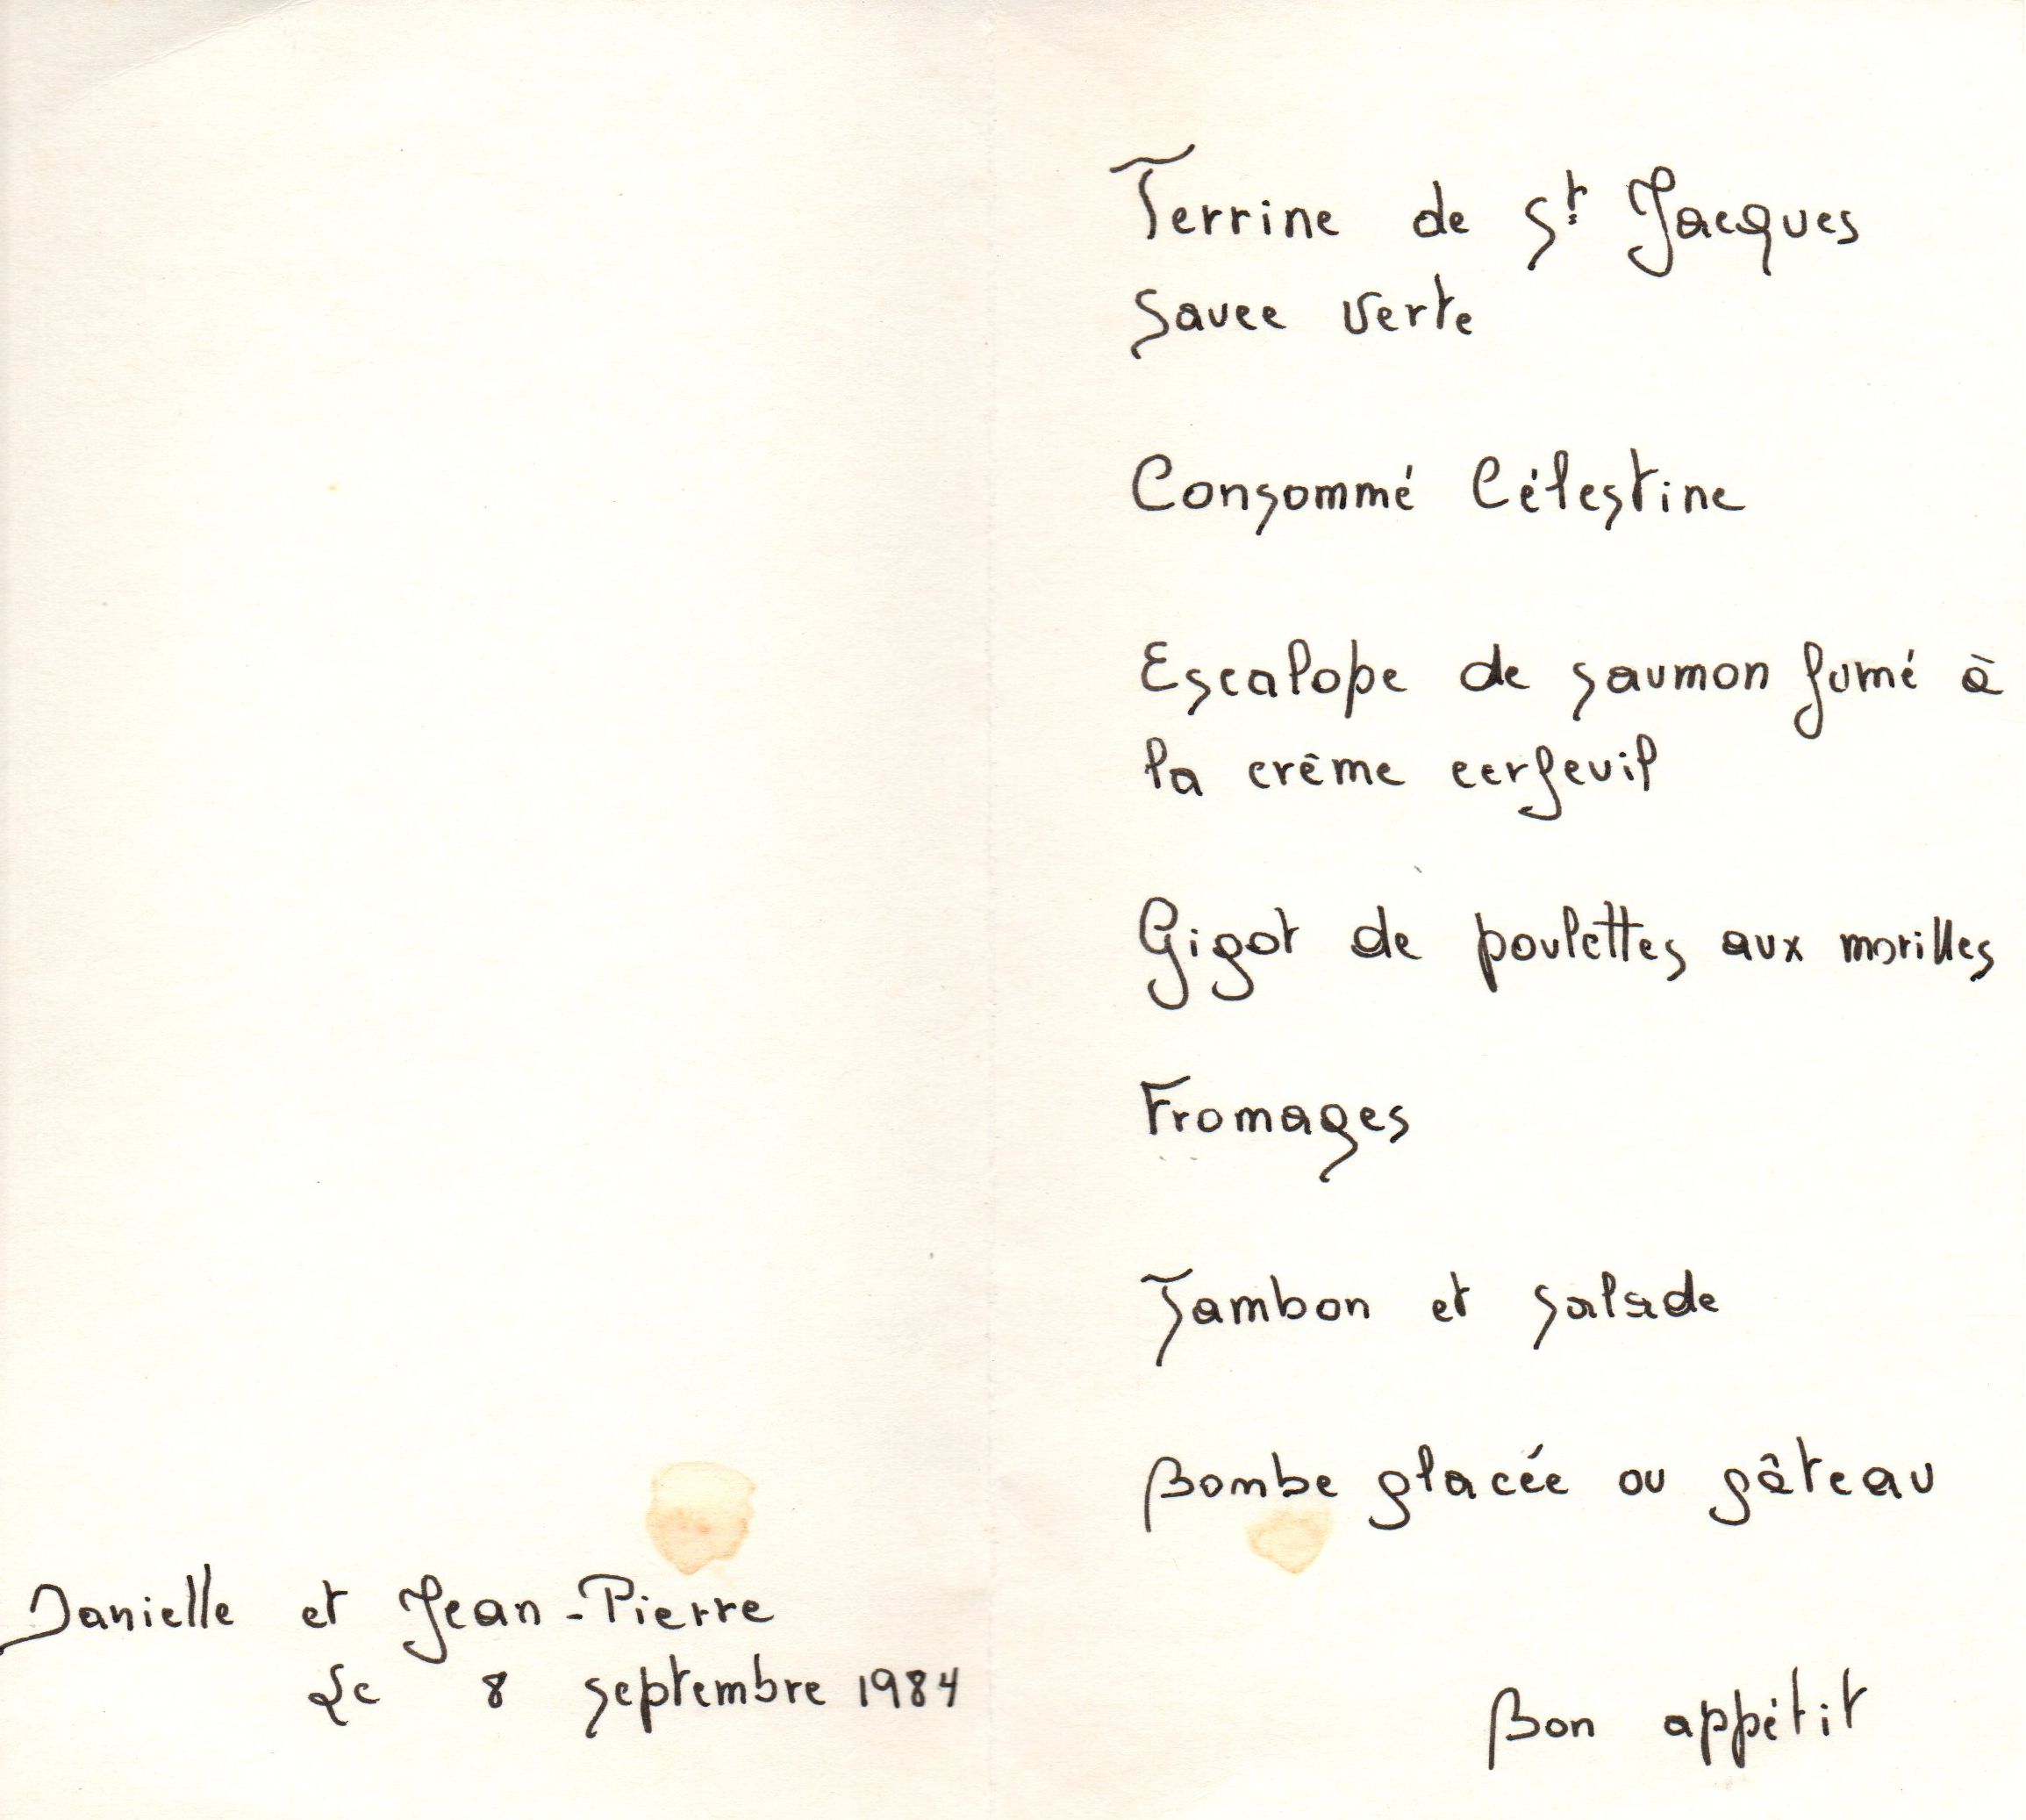 Terrine de St Jacques
Sauce verte
Consommé Célestine
Escalope de saumon fumé à
la crème cerfeuil
Gigot de poulettes aux morilles
Fromages
Jambon et salade
Bombe glacée ou gâteau
Danielle et Jean-Pierre
Le 8 septembre 1984
Bon appétit